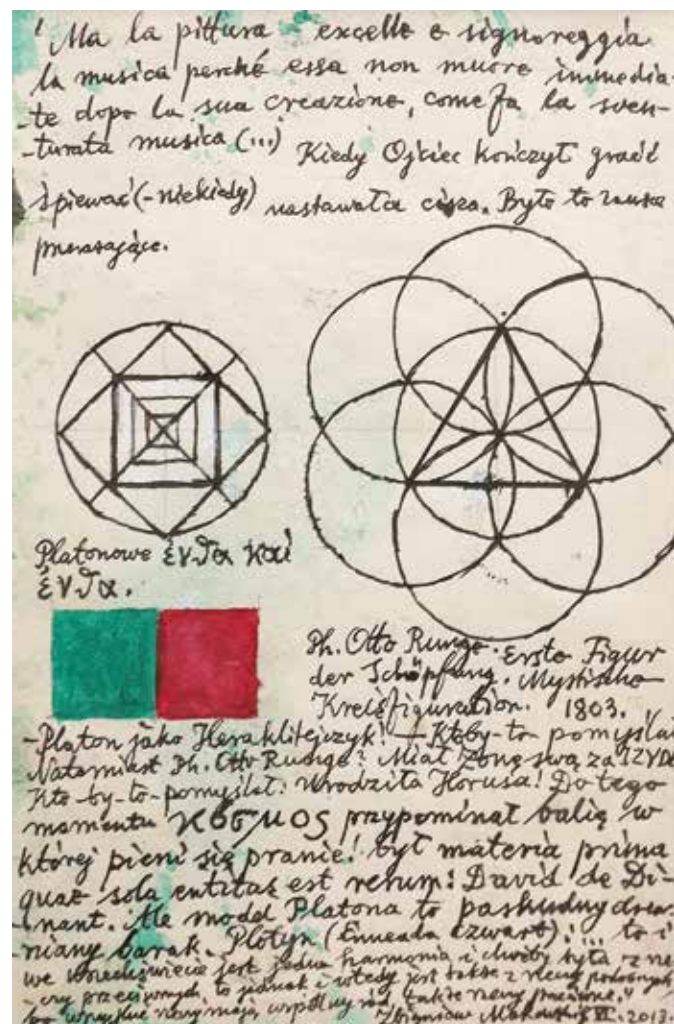 "Ma la pittura excelle e signoreggia
la musica perché essa non muore immedia-
-te dopo la sua creazione, come fa la sven-
-turata musica (...) Kiedy Ojciec kończył grać i
śpiewać (-niekiedy) nastawała cisza. Było to zawsze
przerażające.
Platonowe ἔνϑα καὶ
ἔνϑα.
Ph. Otto Runge. Erste Figur
der Schöpfung. Mystische
Kreisfiguration. 1803.
-Platon jako Heraklitejczyk! - Kto by-to pomyślał
Natomiast Ph. Otto Runge? Miał żonę swą za IZYDĘ
Kto-by-to-pomyślał: urodziła Horusa! Do tego
momentu κόσμος przypominał balię w
której pieni się pranie! był materia prima
quae sola entitas est rerum: David de Di-
-nant. Ale model Platona to paskudny drew-
niany barak. Plotyn (Enneada czwarta): "... to i
we wszechświecie jest jedna harmonia, i choćby była z
to jednak i wtedy jest także z rzeczy podobnych
bo wszystkie rzeczy mają wspólny ród, także rzeczy przeciwne."
Zbigniew Makowski VI. 2013.